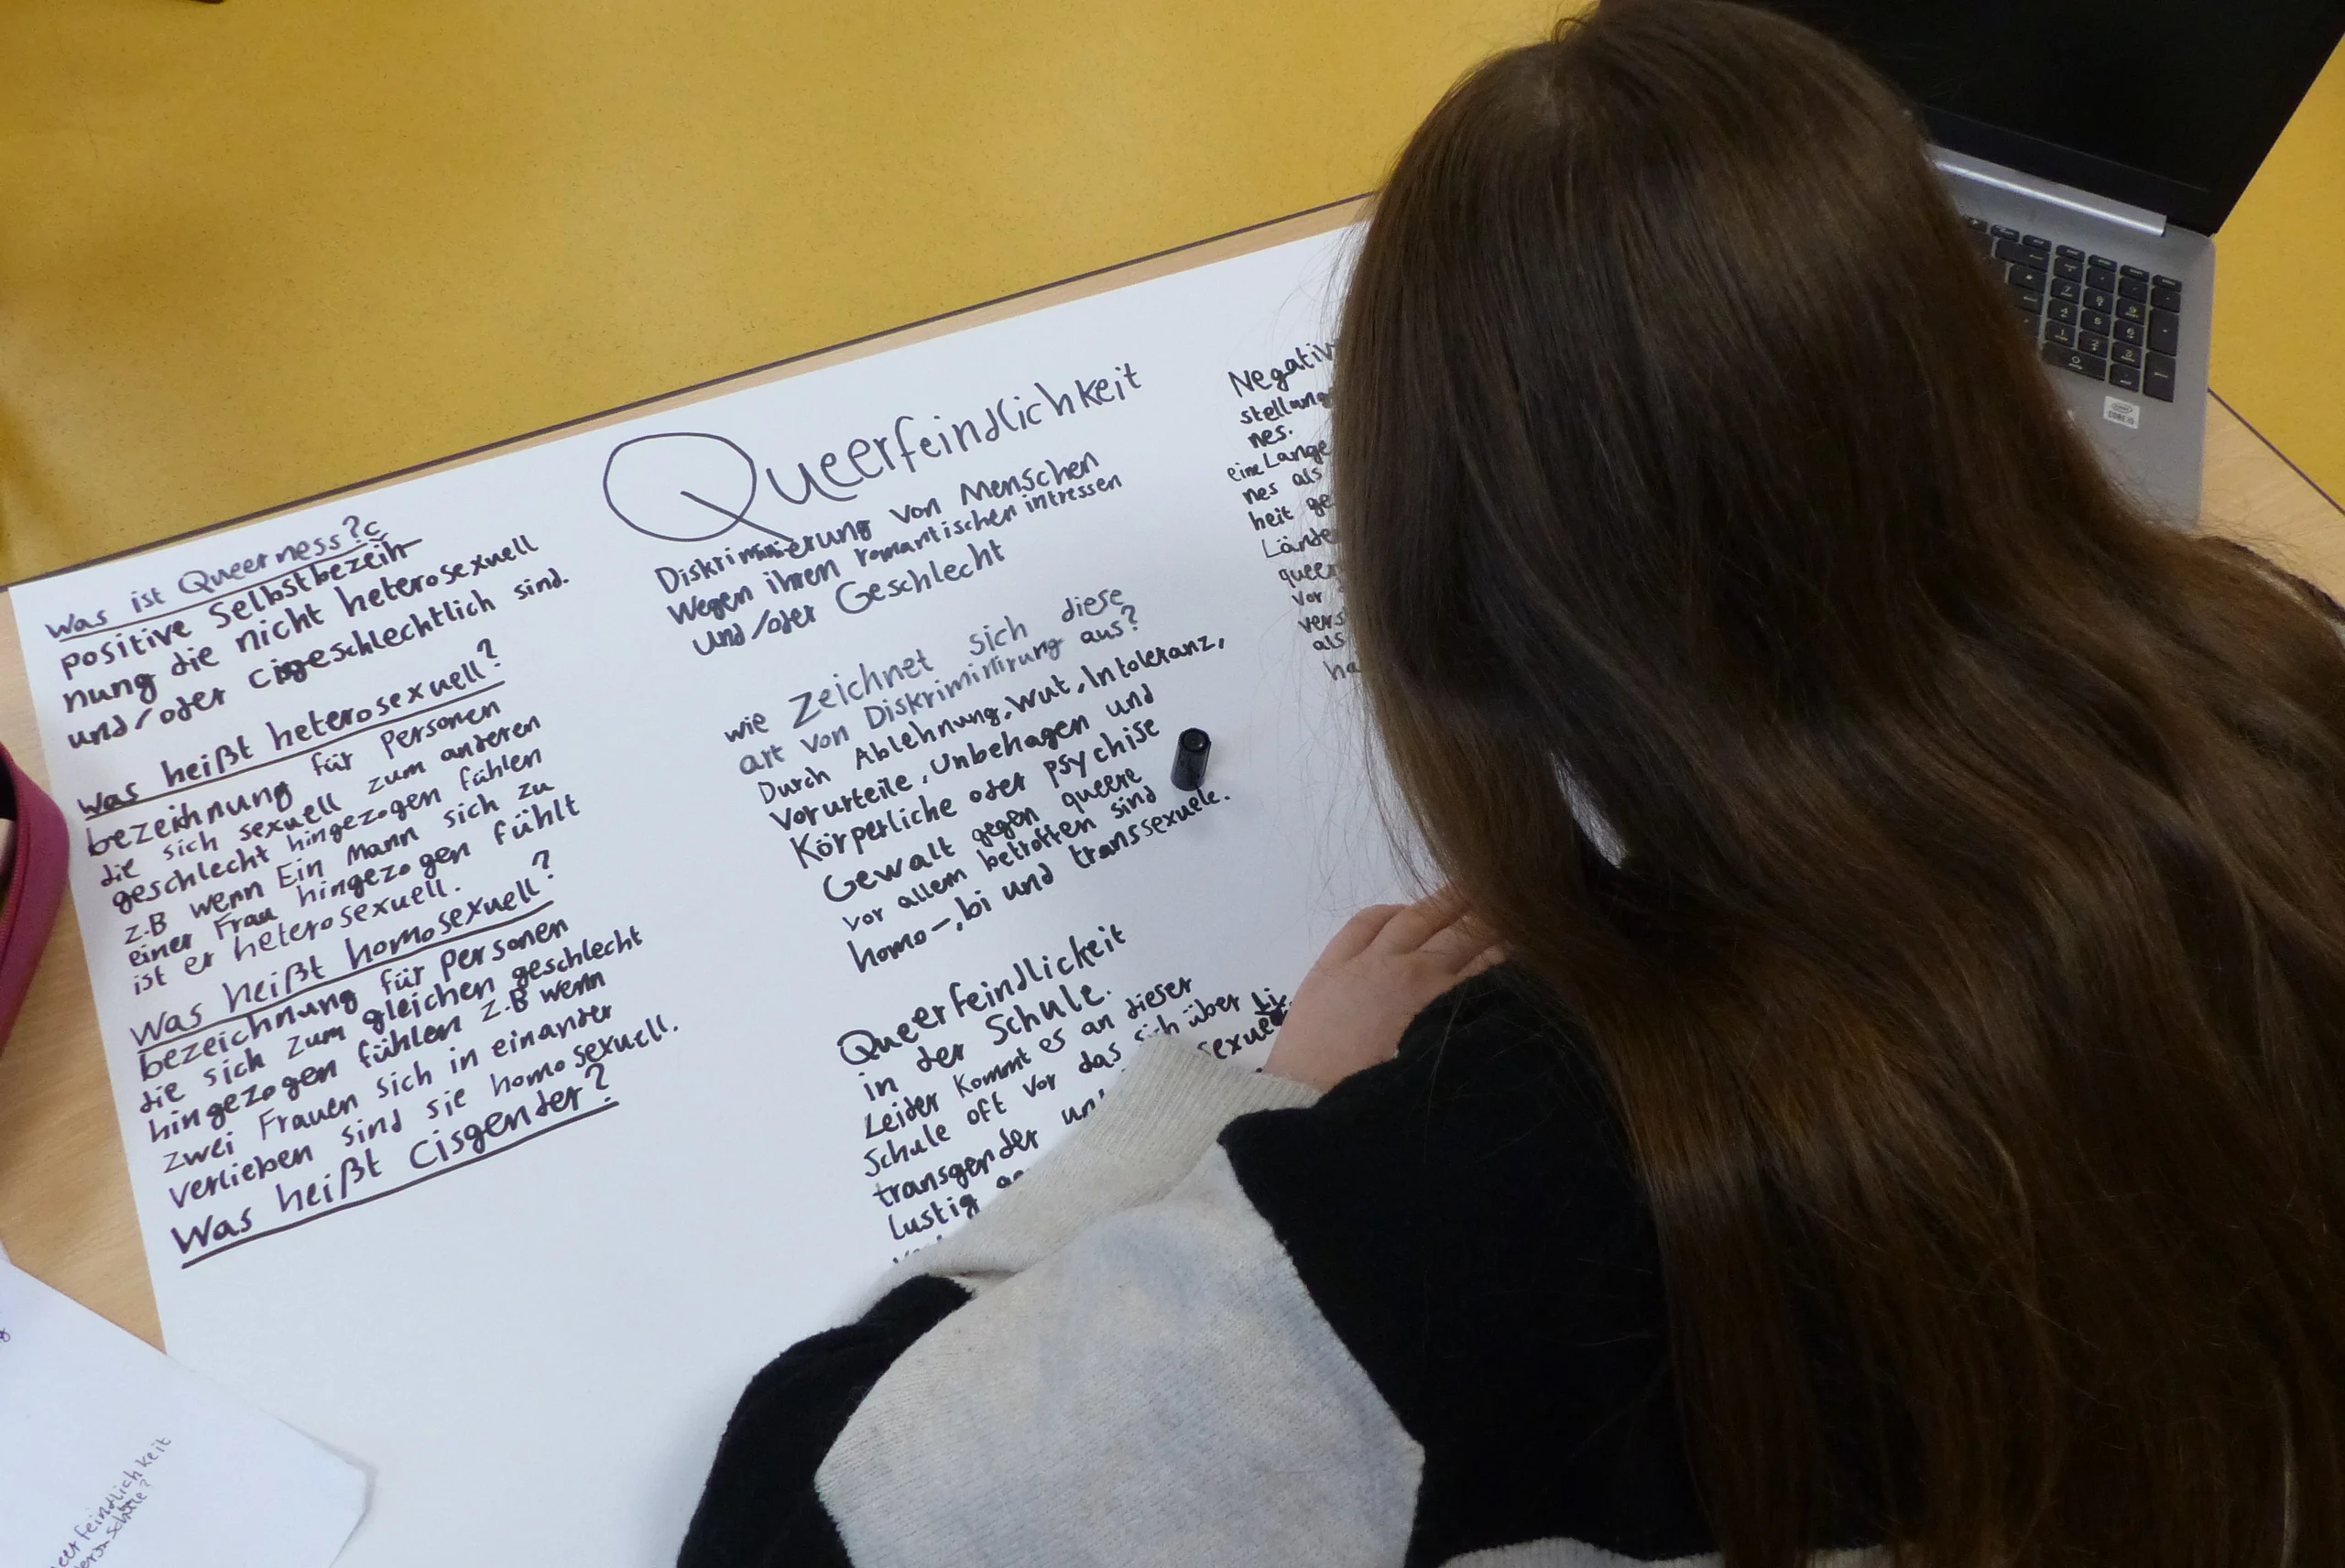 Queerfeindlichkeit
Diskriminierung von Menschen
Wegen ihren romantischen intressen
und/oder Geschlecht
Was ist Queerness?
positive Selbstbezeih-
nung die nicht heterosexuell
und/oder cisgeschlechtlich sind.
Was heißt heterosexuell?
bezeichnung für Personen
die sich sexuell zum anderen
geschlecht hingezogen fühlen
z.B wenn Ein Mann sich zu
einer Frau hingezogen fühlt
ist er heterosexuell.
Was heißt homosexuell?
bezeichnung für Personen
die sich zum gleichen geschlecht
hingezogen fühlen z.B wenn
zwei Frauen sich in einander
verlieben sind sie homosexuell.
Was heißt Cisgender?
wie zeichnet sich diese
art von Diskriminirung aus?
Durch Ablehnung, Wut, Intoleranz,
Vorurteile, Unbehagen und
Körperliche oder psychise
Gewalt gegen queere
vor allem betroffen sind
homo-, bi und transsexuele.
Queerfeindlickeit
in der Schule.
Leider kommt es an dieser
Schule oft vor das sich über
transgender
Lustig
Negativ
stellung
nes.
eine Lange
nes als
heit ge
Lände
queer
vor
vers
als
ha